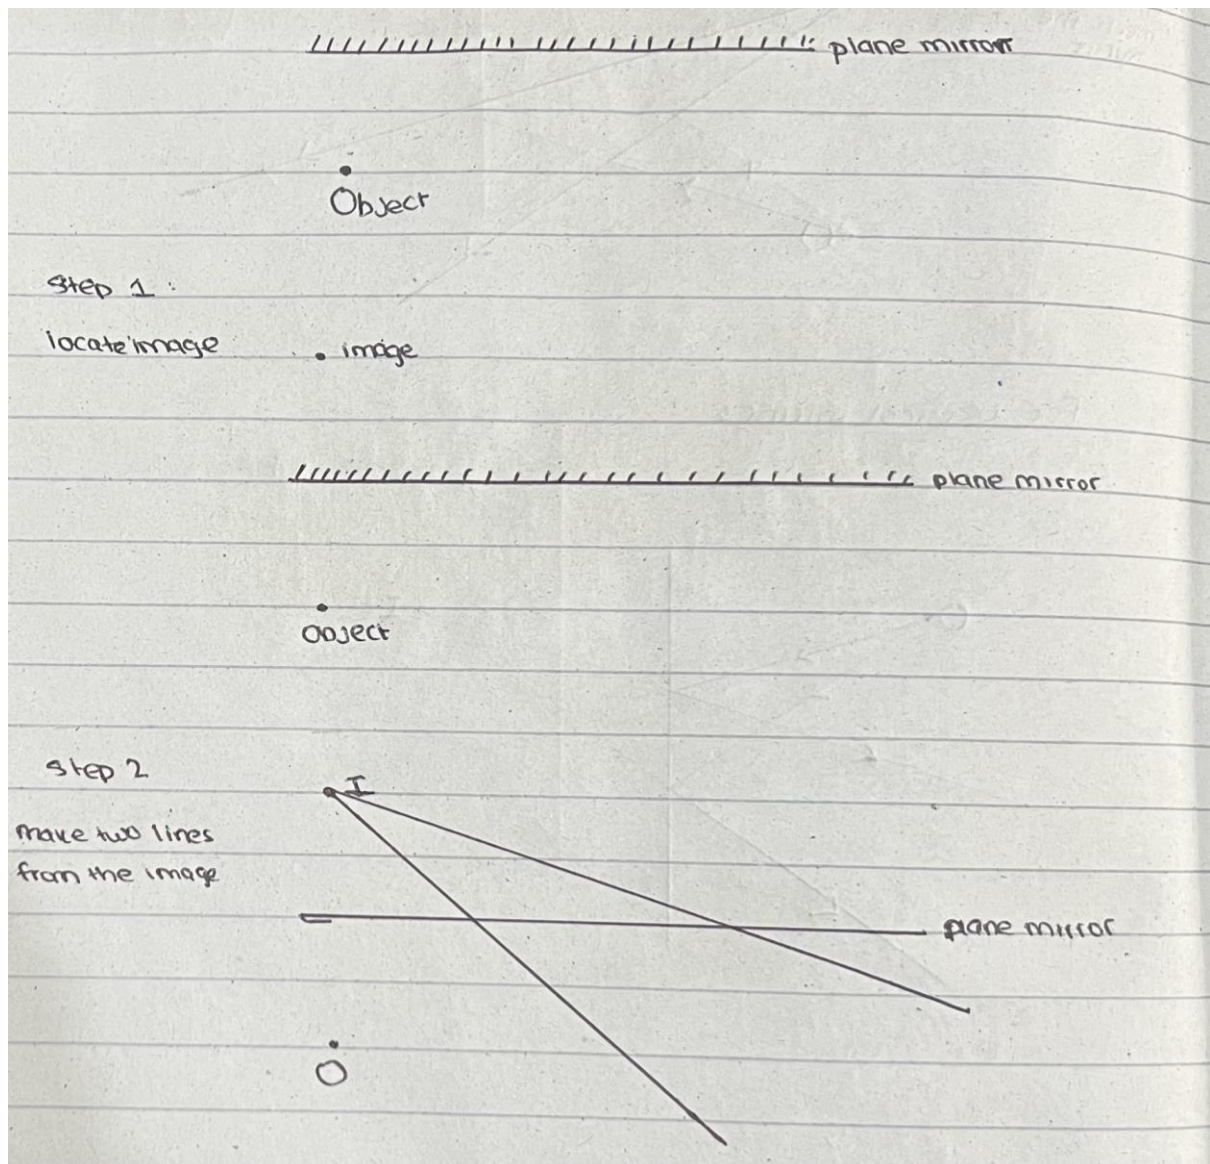 plane mirror
Object
Step 1:
locate image
image
plane mirror
object
Step 2
I
make two lines
from the image
plane mirror
O